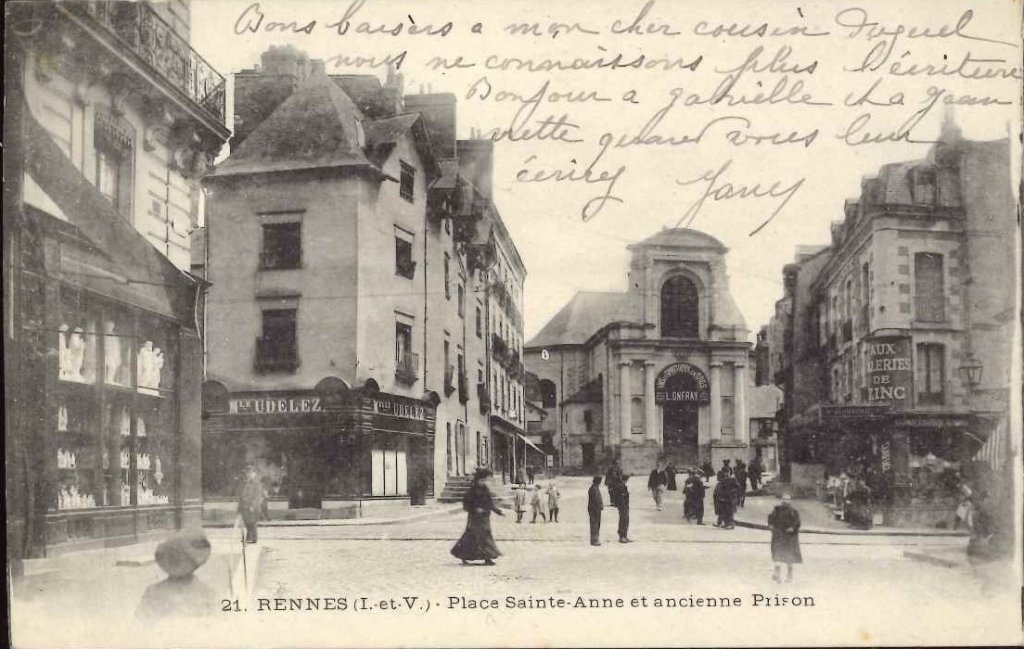 Bons baisers a mon cher cousin duquel
nous ne connaissons plus l'écriture
Bonjour a gabrielle et a Jean
nette quand vous leur
écrirez
LN UDELEZ.
UDELEZ
L. ONFRAY
AUX
GALERIES
DE
ZINC
21. RENNES (I.-et-V.) - Place Sainte-Anne et ancienne Prison